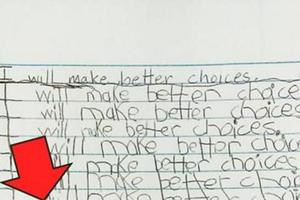 I will make better choices.
will make better choice
will make better choices
will make better choices.
will make better choice
make better choices
make better choic
will make better choices